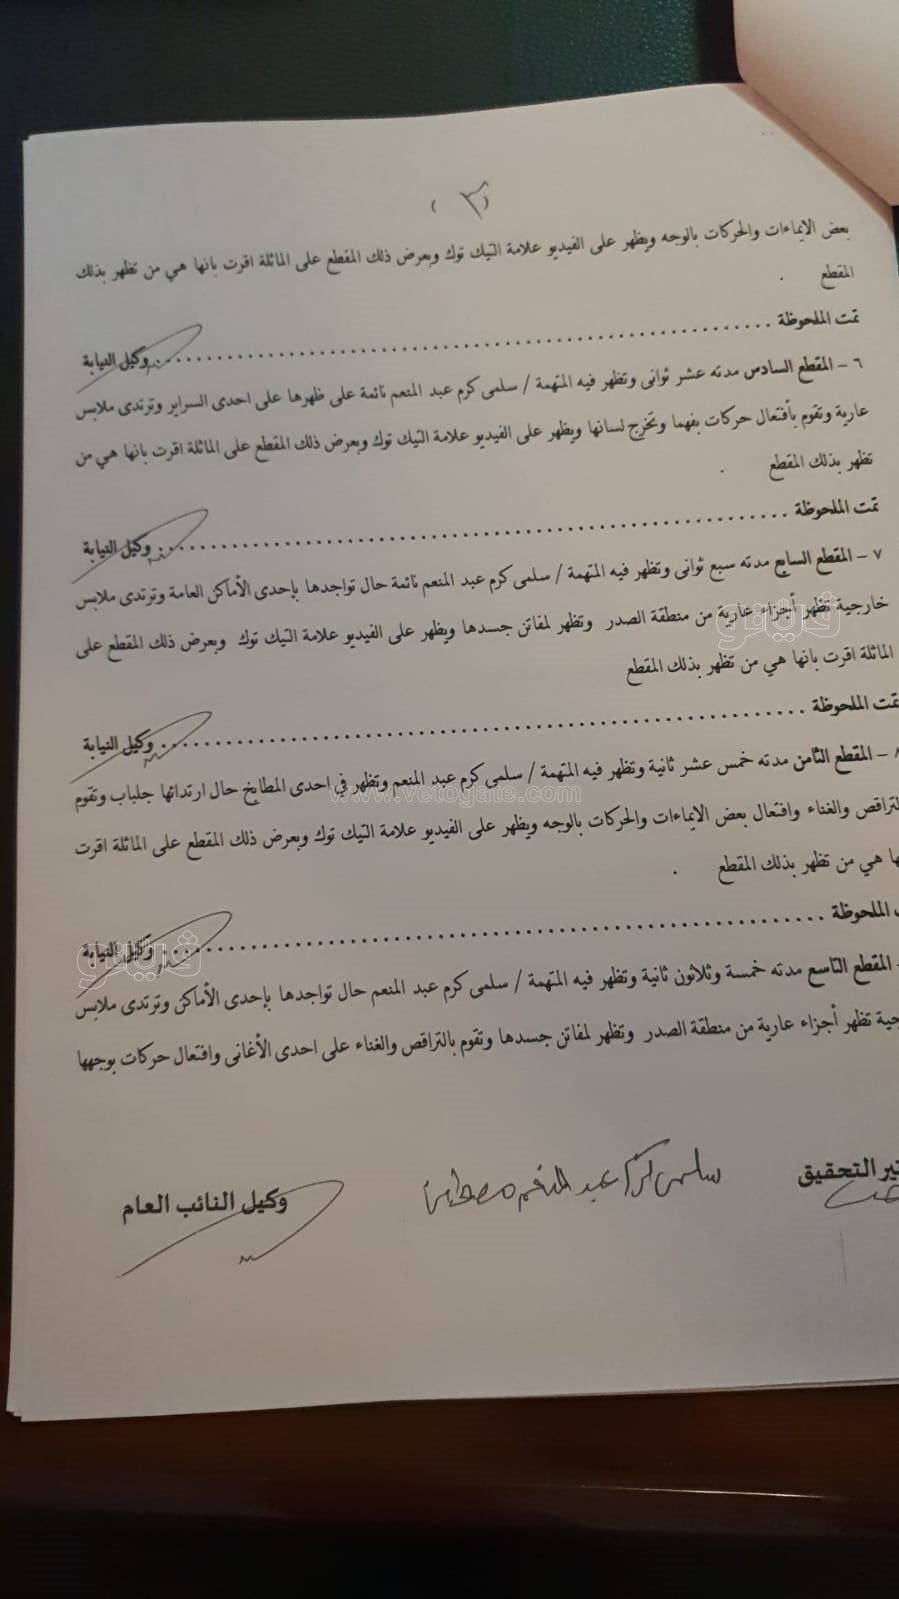 (٣)
بعض الايماءات والحركات بالوجه ويظهر على الفيديو علامة التيك توك وبعرض ذلك المقطع على الماثلة اقرت بانها هي من تظهر بذلك
المقطع .
تمت الملحوظة ........................................ وكيل النيابة
٦ – المقطع السادس مدته عشر ثوانى وتظهر فيه المتهمة / سلمى كرم عبد المنعم نائمة على ظهرها على احدى السراير وترتدى ملابس
عارية وتقوم بأفتعال حركات بفهما وتخرج لسانها ويظهر على الفيديو علامة التيك توك وبعرض ذلك المقطع على الماثلة اقرت بانها هي من
تظهر بذلك المقطع .
تمت الملحوظة ........................................ وكيل النيابة
٧ – المقطع السابع مدته سبع ثوانى وتظهر فيه المتهمة / سلمى كرم عبد المنعم نائمة حال تواجدها بإحدى الأماكن العامة وترتدى ملابس
خارجية تظهر أجزاء عارية من منطقة الصدر وتظهر لمفاتن جسدها ويظهر على الفيديو علامة التيك توك وبعرض ذلك المقطع على
الماثلة اقرت بانها هي من تظهر بذلك المقطع
تمت الملحوظة ........................................ وكيل النيابة
– المقطع الثامن مدته خمس عشر ثانية وتظهر فيه المتهمة / سلمى كرم عبد المنعم وتظهر في احدى المطابخ حال ارتدائها جلباب وتقوم
لتراقص والغناء وافتعال بعض الايماءات والحركات بالوجه ويظهر على الفيديو علامة التيك توك وبعرض ذلك المقطع على الماثلة اقرت
ها هي من تظهر بذلك المقطع .
الملحوظة ........................................ وكيل النيابة
المقطع التاسع مدته خمسة وثلاثون ثانية وتظهر فيه المتهمة / سلمى كرم عبد المنعم حال تواجدها بإحدى الأماكن وترتدى ملابس
جية تظهر أجزاء عارية من منطقة الصدر وتظهر لمفاتن جسدها وتقوم بالتراقص والغناء على احدى الأغانى وافتعال حركات بوجهها
تير التحقيق سلمى كرم عبد المنعم مصطفى وكيل النائب العام
فيتو
www.vetogate.com
فيتو